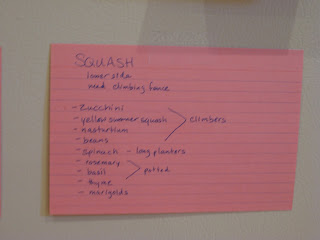 SQUASH
lower side
need climbing fence
- zucchini
- yellow summer squash climbers
- nasturtium
- beans
- spinach - long planters
- rosemary
- basil potted
- thyme
- marigolds